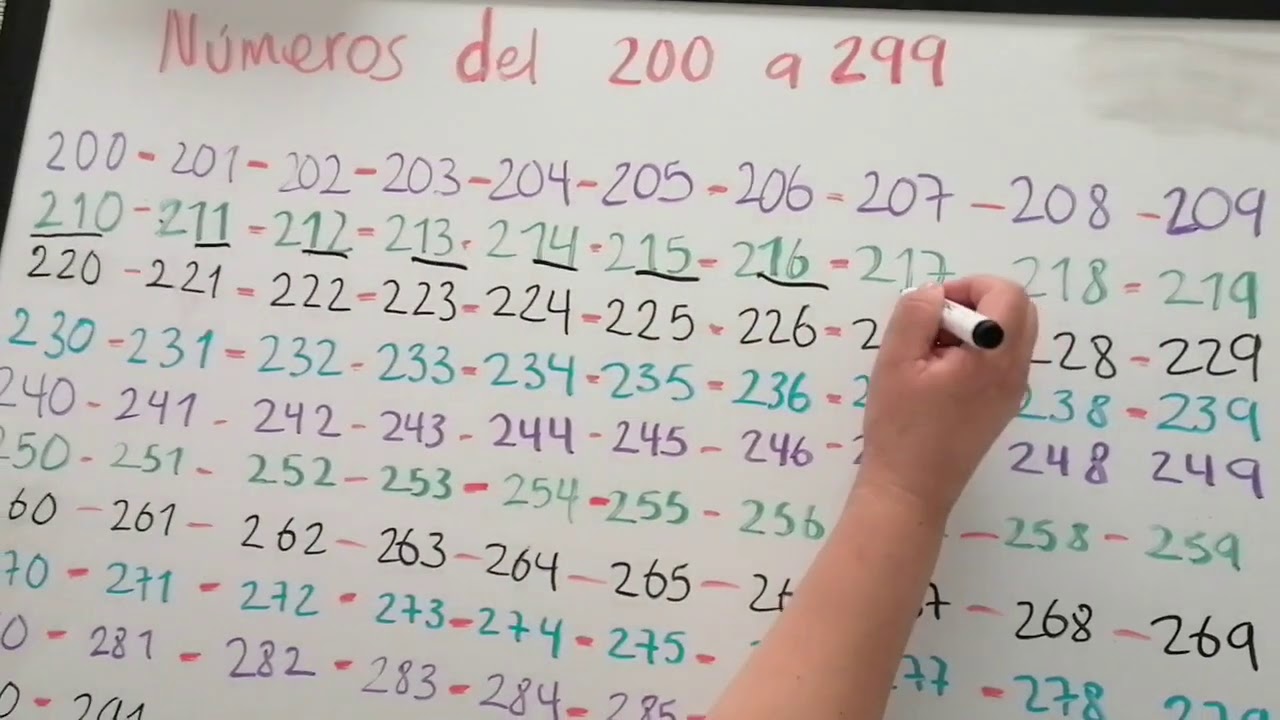 Números del 200 a 299
200 - 201 - 202 - 203 - 204 - 205 - 206 - 207 - 208 - 209
210 - 211 - 212 - 213 - 214 - 215 - 216 - 217 218 - 219
220 - 221 - 222 - 223 - 224 - 225 - 226 - 2 28 - 229
230 - 231 - 232 - 233 - 234 - 235 - 236 - 2 238 - 239
240 - 241 - 242 - 243 - 244 - 245 - 246 - 2 248 249
250 - 251 - 252 - 253 - 254 - 255 - 256 - 258 - 259
60 - 261 - 262 - 263 - 264 - 265 - 26 7 - 268 - 269
70 - 271 - 272 - 273 - 274 - 275 - 77 - 278
0 - 281 - 282 - 283 - 284 - 285 -
0 - 291